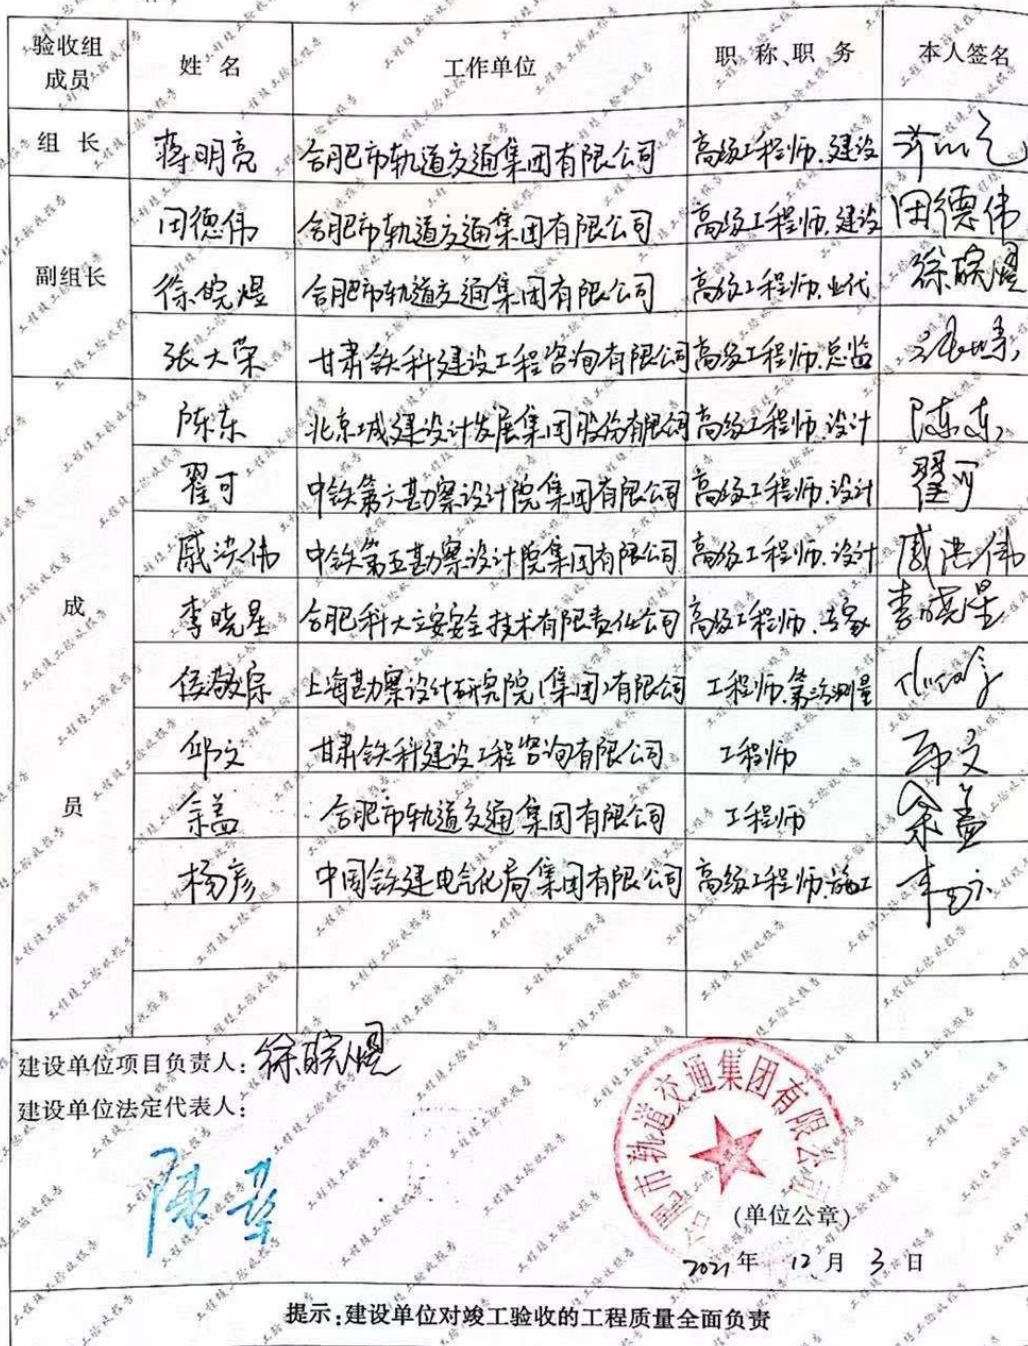 验收组成员 姓 名 工作单位 职 称、职 务 本人签名
组 长 蒋明亮 合肥市轨道交通集团有限公司 高级工程师.建设
副组长 田德伟 合肥市轨道交通集团有限公司 高级工程师.建设 田德伟
徐皖煜 合肥市轨道交通集团有限公司 高级工程师.业代 徐皖煜
张大荣 甘肃铁科建设工程咨询有限公司 高级工程师.总监
成员 陈东 北京城建设计发展集团股份有限公司 高级工程师.设计 陈东
翟可 中铁第六勘察设计院集团有限公司 高级工程师.设计 翟可
戚洪伟 中铁第五勘察设计院集团有限公司 高级工程师.设计 戚洪伟
李晓星 合肥科大立安安全技术有限责任公司 高级工程师.专家 李晓星
侯敬宗 上海勘察设计研究院(集团)有限公司 工程师.第三方测量
邱文 甘肃铁科建设工程咨询有限公司 工程师 邱文
余盖 合肥市轨道交通集团有限公司 工程师 余盖
杨彦 中国铁建电气化局集团有限公司 高级工程师.施工
建设单位项目负责人:徐皖煜
建设单位法定代表人:
合肥市轨道交通集团有限公司
(单位公章)
2021年 12月 3日
提示:建设单位对竣工验收的工程质量全面负责
工程竣工验收报告